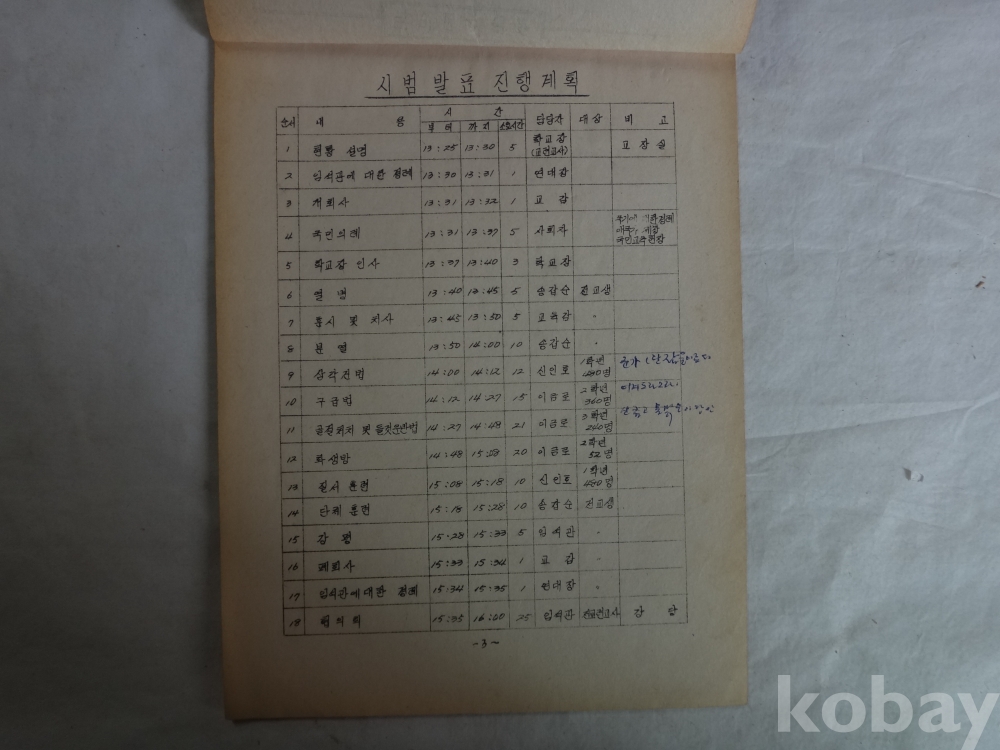 시범 발표 진행계획
순서 내 용 시 간 담당자 대상 비 고
부 터 까 지 소요시간
1 현황 설명 13:25 13:30 5 학교장 (교련교사) 교장실
2 임석관에 대한 경례 13:30 13:31 1 연대장
3 개회사 13:31 13:32 1 교 감
4 국민의례 13:31 13:37 5 사회자 국기에 대한경례
애국가 제창
국민교육헌장
5 학교장 인사 13:37 13:40 3 학교장
6 열 병 13:40 13:45 5 송갑순 전교생
7 훈시 및 치사 13:45 13:50 5 교육감 〃
8 분 열 13:50 14:00 10 송갑순 〃
9 삼각건법 14:00 14:12 12 신인로 1학년 480명
10 구급법 14:12 14:27 15 이금로 2학년 360명
11 골절처치 및 들것운반법 14:27 14:48 21 이금로 3학년 240명
12 화생방 14:48 15:08 20 이금로 2학년 52명
13 질서 훈련 15:08 15:18 10 신인로 1학년 480명
14 단체 훈련 15:18 15:28 10 송갑순 전교생
15 강 평 15:28 15:33 5 임석관 〃
16 폐회사 15:33 15:34 1 교 감 〃
17 임석관에 대한 경례 15:34 15:35 1 연대장 〃
18 협의회 15:35 16:00 25 임석관 강 당
-3-
kobay